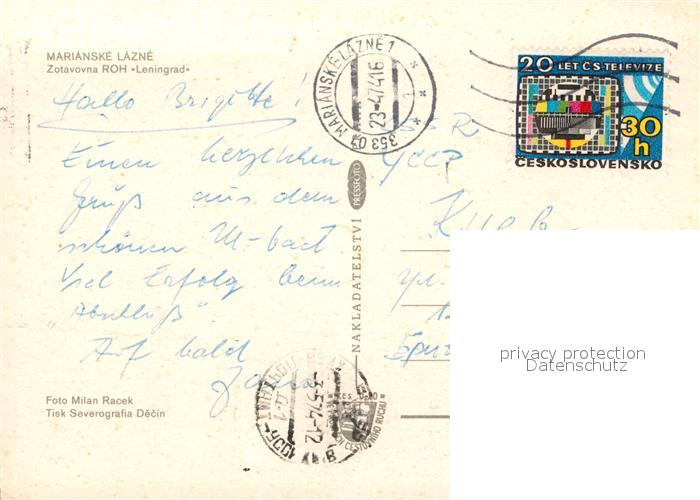 MARIÁNSKÉ LÁZNĚ
Zotavovna ROH »Leningrad«
Hallo Brigitte!
Einen herzlichen
Gruß aus dem
schönen M-bad.
Viel Erfolg beim
"Abschluß".
Auf bald
Foto Milan Racek
Tisk Severografia Děčín
NAKLADATELSTVÍ PRESSFOTO
MARIÁNSKÉ LÁZNĚ 1
23-4.74-16
353 01
20 LET ČS TELEVIZE
30
h
ČESKOSLOVENSKO
УССР
Киев
ул.
-3-574-12
CESTOVNÍHO RUCHU
privacy protection
Datenschutz